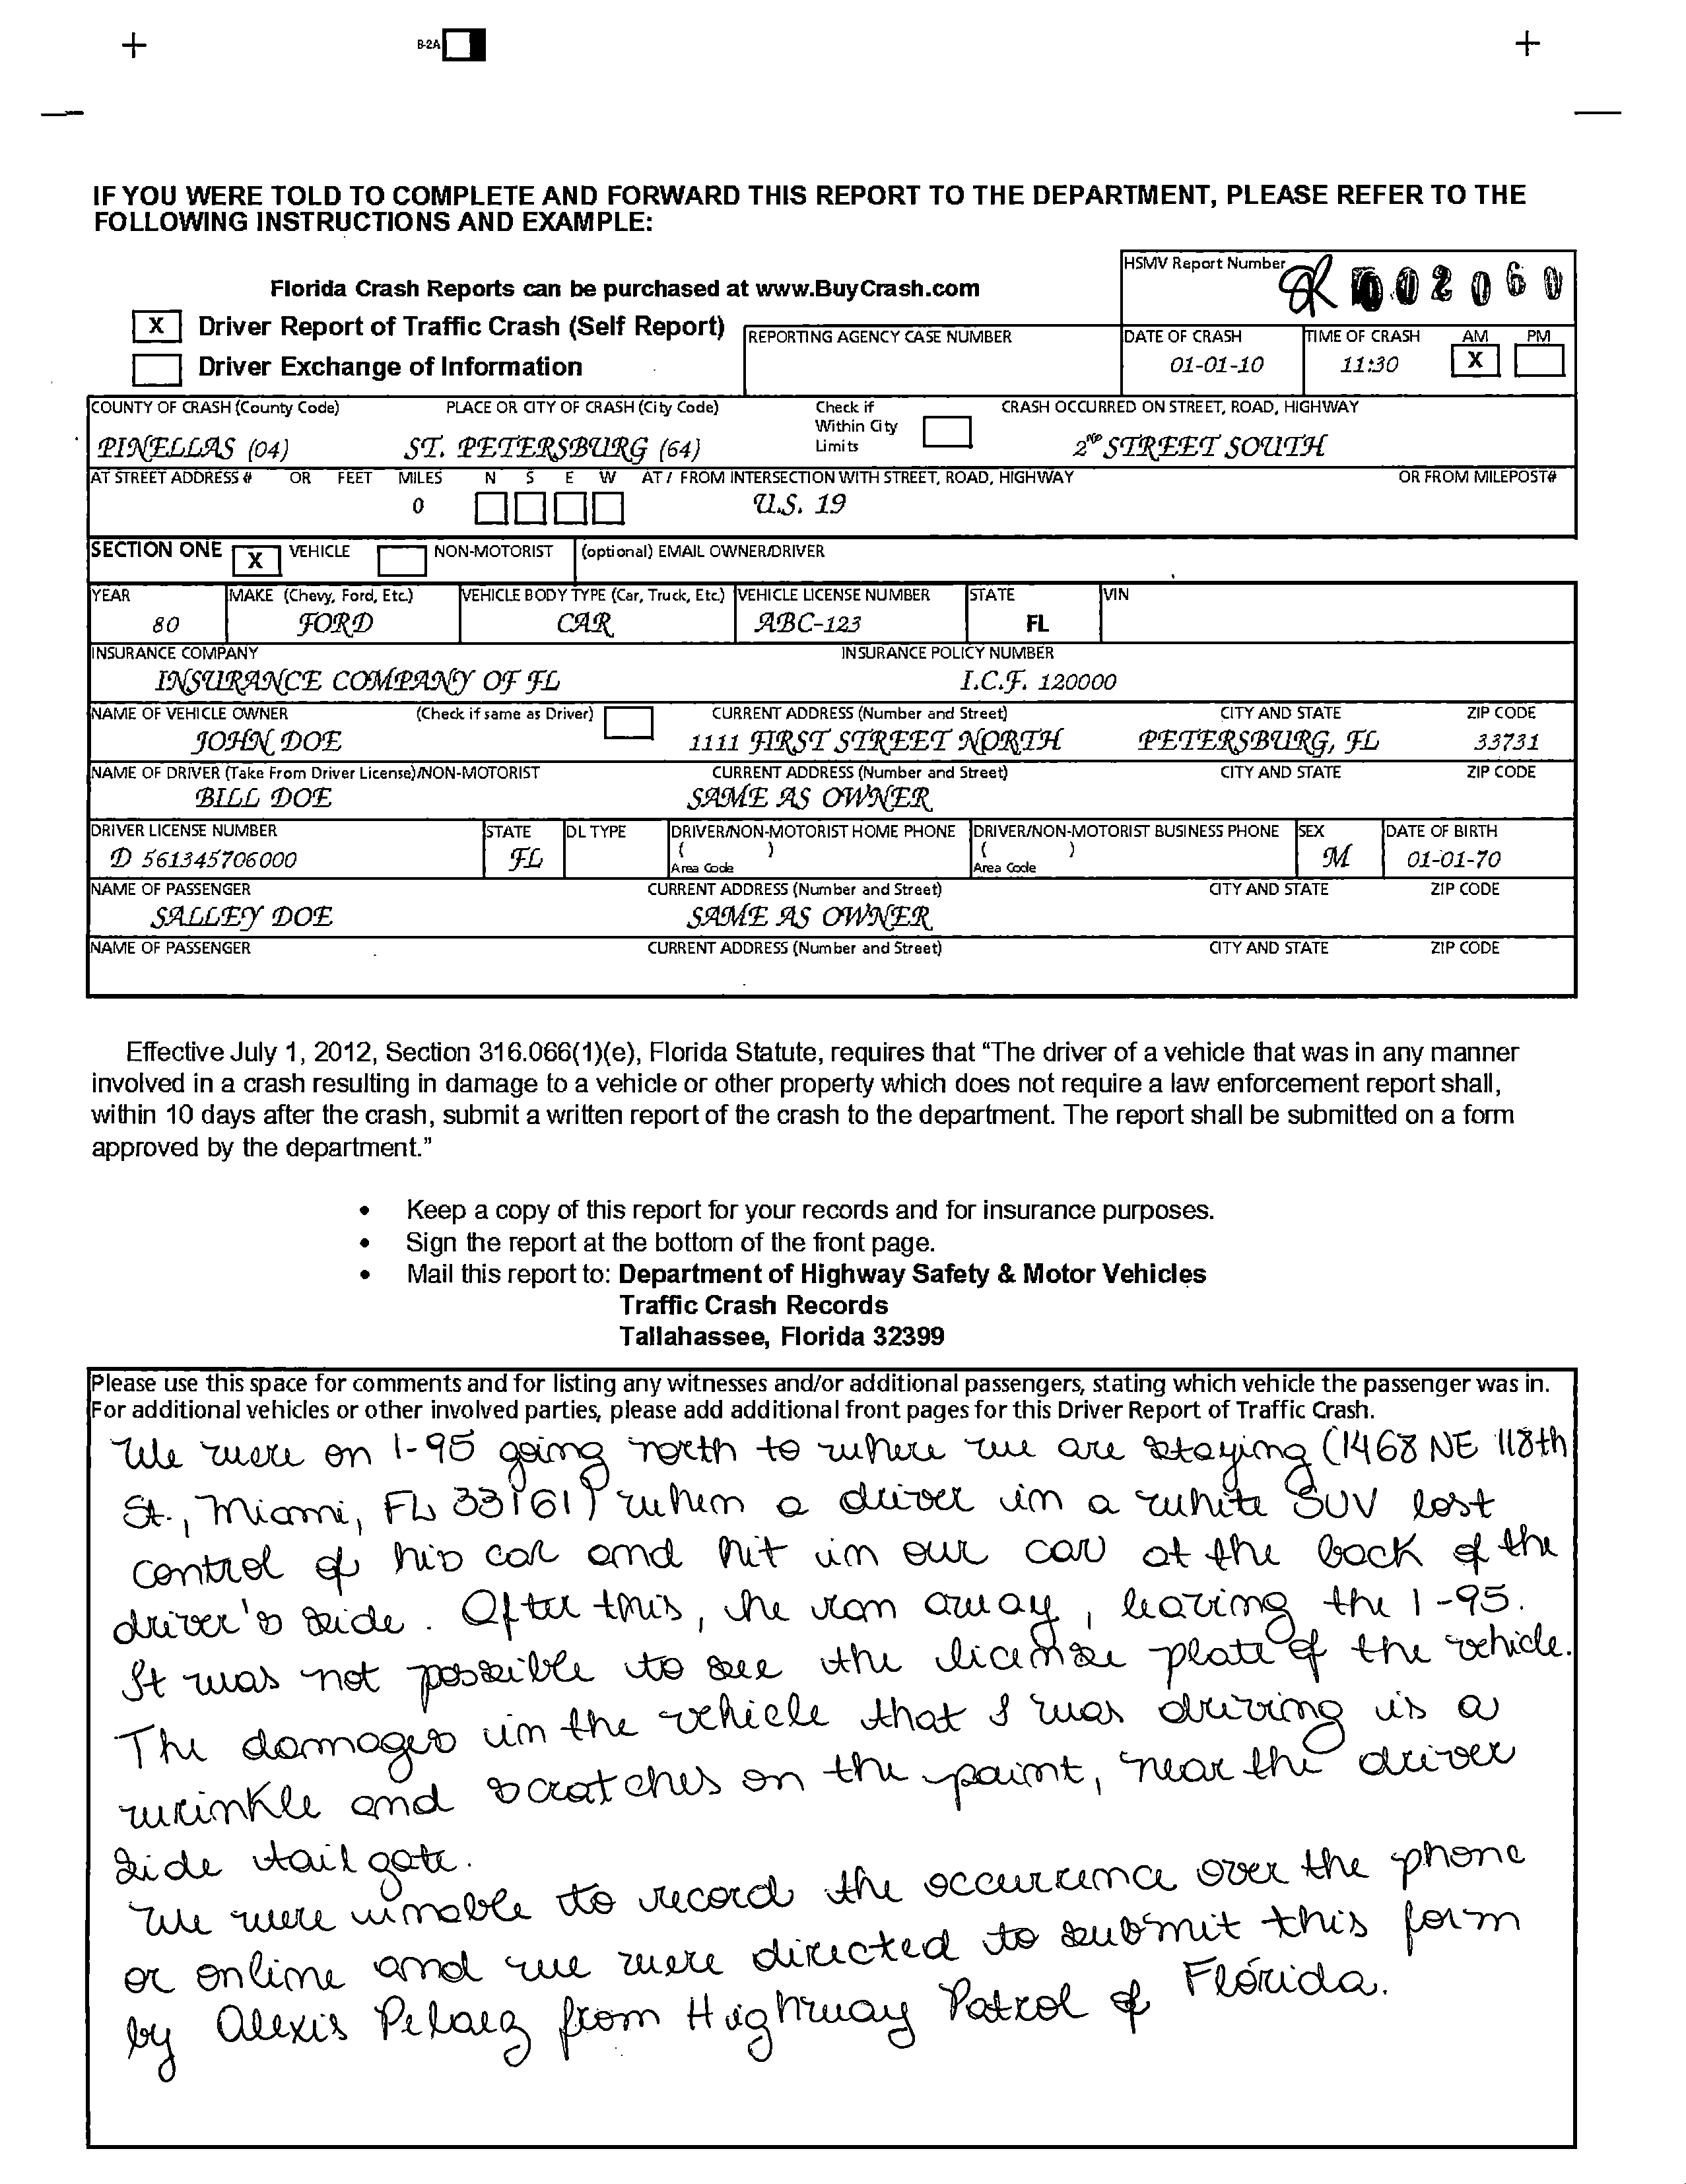 B-2A
IF YOU WERE TOLD TO COMPLETE AND FORWARD THIS REPORT TO THE DEPARTMENT, PLEASE REFER TO THE
FOLLOWING INSTRUCTIONS AND EXAMPLE:
HSMV Report Number
02060
Florida Crash Reports can be purchased at www.BuyCrash.com
X Driver Report of Traffic Crash (Self Report)
Driver Exchange of Information
REPORTING AGENCY CASE NUMBER
DATE OF CRASH TIME OF CRASH AM PM
01-01-10 11:30 X
COUNTY OF CRASH (County Code) PLACE OR CITY OF CRASH (City Code) Check if Within City Limits CRASH OCCURRED ON STREET, ROAD, HIGHWAY
PINELLAS (04) ST. PETERSBURG (64) 2ND STREET SOUTH
AT STREET ADDRESS # OR FEET MILES N S E W AT / FROM INTERSECTION WITH STREET, ROAD, HIGHWAY OR FROM MILEPOST#
0 U.S. 19
SECTION ONE X VEHICLE NON-MOTORIST (optional) EMAIL OWNER/DRIVER
YEAR MAKE (Chevy, Ford, Etc.) VEHICLE BODY TYPE (Car, Truck, Etc.) VEHICLE LICENSE NUMBER STATE VIN
80 FORD CAR ABC-123 FL
INSURANCE COMPANY INSURANCE POLICY NUMBER
INSURANCE COMPANY OF FL I.C.F. 120000
NAME OF VEHICLE OWNER (Check if same as Driver) CURRENT ADDRESS (Number and Street) CITY AND STATE ZIP CODE
JOHN DOE 1111 FIRST STREET NORTH PETERSBURG, FL 33731
NAME OF DRIVER (Take From Driver License)/NON-MOTORIST CURRENT ADDRESS (Number and Street) CITY AND STATE ZIP CODE
BILL DOE SAME AS OWNER
DRIVER LICENSE NUMBER STATE DL TYPE DRIVER/NON-MOTORIST HOME PHONE DRIVER/NON-MOTORIST BUSINESS PHONE SEX DATE OF BIRTH
D 561345706000 FL ( ) ( ) M 01-01-70
Area Code Area Code
NAME OF PASSENGER CURRENT ADDRESS (Number and Street) CITY AND STATE ZIP CODE
SALLEY DOE SAME AS OWNER
NAME OF PASSENGER CURRENT ADDRESS (Number and Street) CITY AND STATE ZIP CODE
Effective July 1, 2012, Section 316.066(1)(e), Florida Statute, requires that “The driver of a vehicle that was in any manner
involved in a crash resulting in damage to a vehicle or other property which does not require a law enforcement report shall,
within 10 days after the crash, submit a written report of the crash to the department. The report shall be submitted on a form
approved by the department.”
• Keep a copy of this report for your records and for insurance purposes.
• Sign the report at the bottom of the front page.
• Mail this report to: Department of Highway Safety & Motor Vehicles
Traffic Crash Records
Tallahassee, Florida 32399
Please use this space for comments and for listing any witnesses and/or additional passengers, stating which vehicle the passenger was in.
For additional vehicles or other involved parties, please add additional front pages for this Driver Report of Traffic Crash.
We were on I-95 going north to where we are staying (1468 NE 118th
St., Miami, FL 33161) when a driver in a white SUV lost
control of his car and hit in our car at the back of the
driver's side. After this, he ran away, leaving the I-95.
It was not possible to see the license plate of the vehicle.
The damages in the vehicle that I was driving is a
wrinkle and scratches on the paint, near the driver
side tailgate.
We were unable to record the occurrence over the phone
or online and we were directed to submit this form
by Alexis Pelaez from Highway Patrol of Florida.